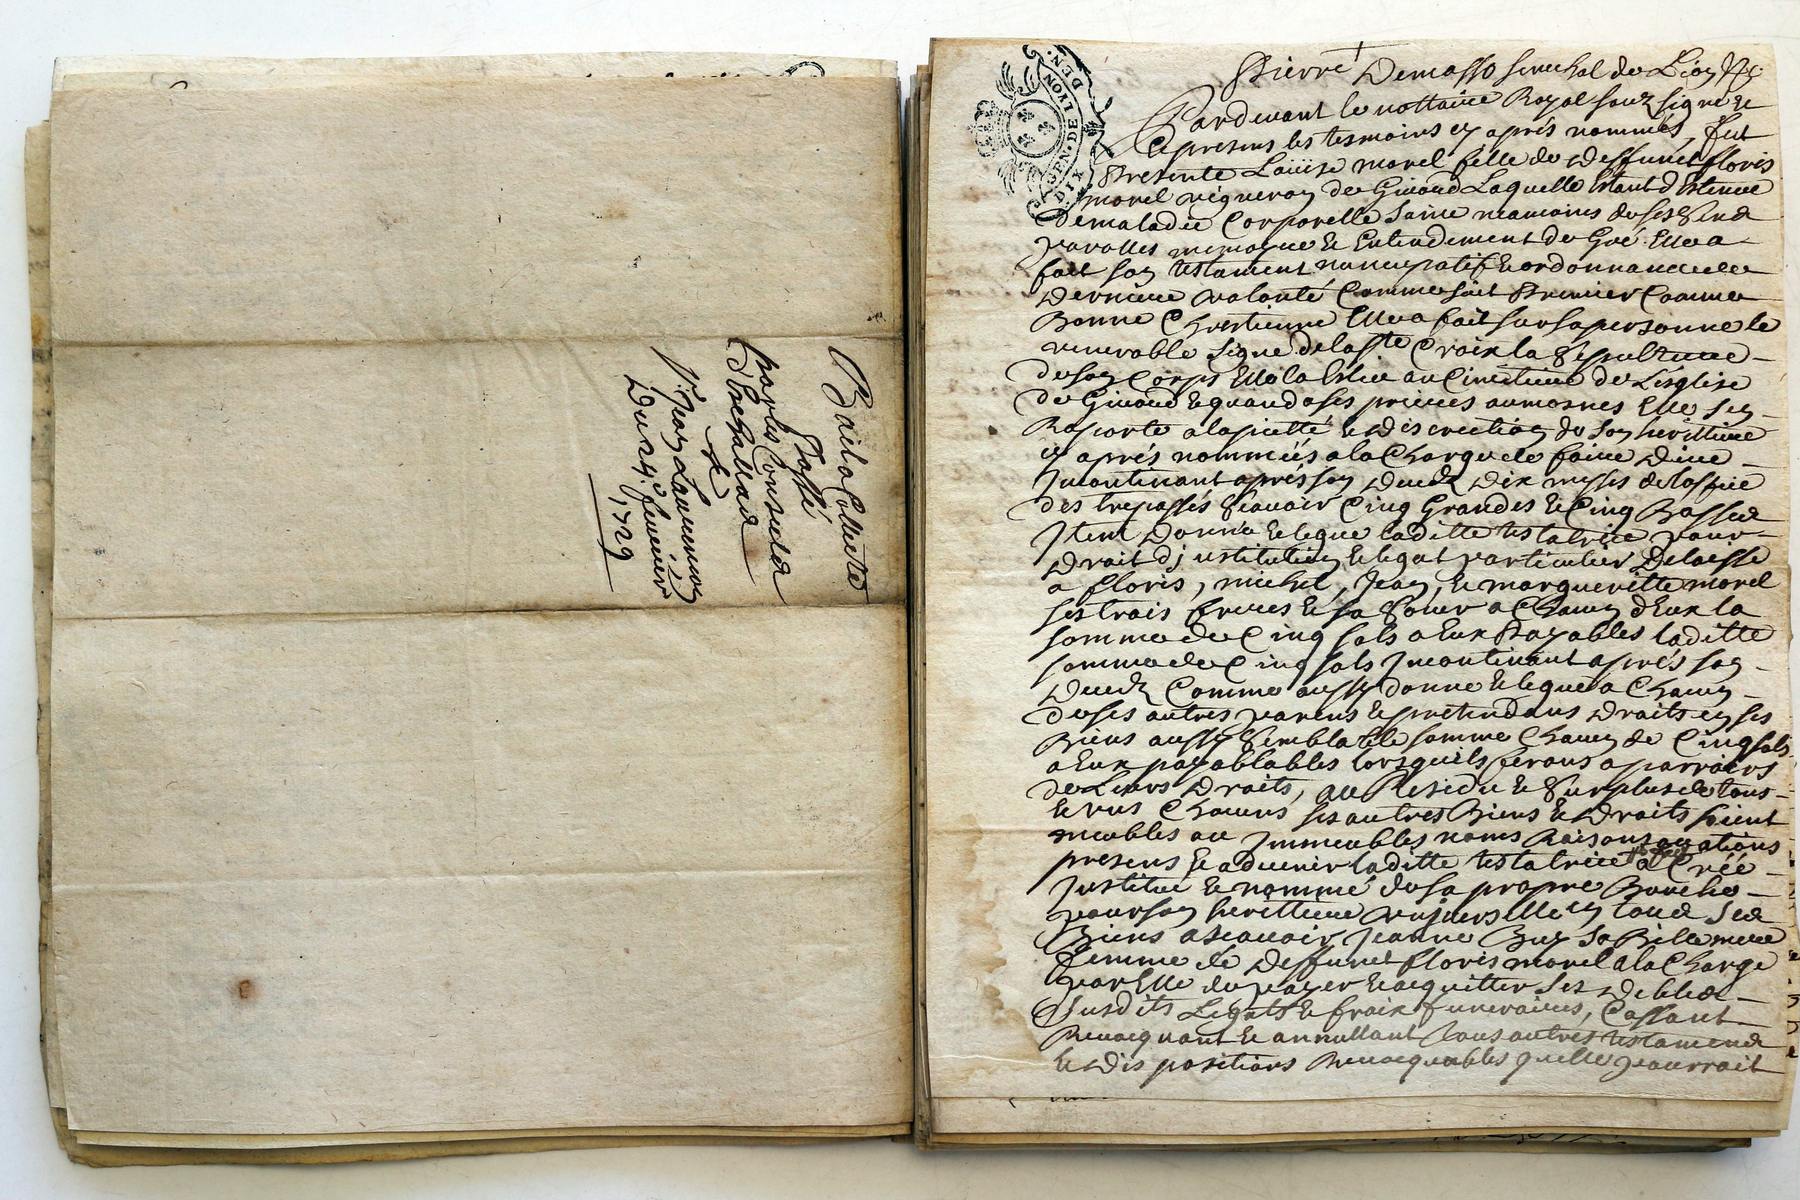 Bail à Collecte
Passé
par les Consuls de
St Galmier
A
Sr. Jean Laurençon
Du 24e. feuvrier
1729
DIX DEN. GEN. DE LYON
Pierre Demasso senechal de Lion
Pardevant le nottaire Royal souz signé et
et presens les tesmoins cy aprés nommés, fut
Presente Loüise morel fille de deffunct floris
morel vigneron de Givord Laquelle estant d'Etenue
de maladie Corporelle saine neamoins de ses sens
parolles memoyre et Entendement de gré Elle a
fait son testament nuncupatif et ordonnance de
derniere volonté Comme suit Premier Comme
Bonne Chrestienne Elle a fait sur sa personne le
venerable signe de la ste Croix la sepulture
de son Corps Elle la Eslue au Cimetiere de L'esglise
de Givord et quand a ses prieres aumosnes Elle s'en
Raporte a la pietté et discrection de son herittiere
cy aprés nommeés a la Charge de faire dire
Jncontinant aprés son deceds dix messes de l'office
des trepassés sçavoir Cinq Grandes et Cinq Basses
Jtem donne et legue laditte testatrice pour
droit d'justitution et legat particulier delaisse
a floris, michel, Jean, et margueritte morel
ses trois freres et sa soeur a Chacun d'Eux la
somme de Cinq sols a Eux Payables laditte
somme de Cinq sols Jncontinant aprés son
deceds Comme aussy donne et legue a Chacun
de ses autres parens et pretendans droits en ses
Biens aussy semblable somme Chacun de Cinq sols
a Eux payablables lorsquils feront aparroirs
de Leurs droits, au Residu et surplus de tous
et vns Chacuns ses autres Biens et droits soient
meubles ou Jmmeubles noms Raisons ou ations
presens et advenir laditte testatrice a Créé
Justitue et nommé de sa propre Bouche
pour son herittiere vnjverselle en tous ses
Biens ascavoir Jeanne Buy sa Belle mere
femme de deffunct floris morel a la Charge
par Elle de payer et acquitter ses debtes
susdits Legats et fraix funeraires, Cassant
Revocquant et annullant tous autres testamens
et dis positions Revocquables quelle pourroit